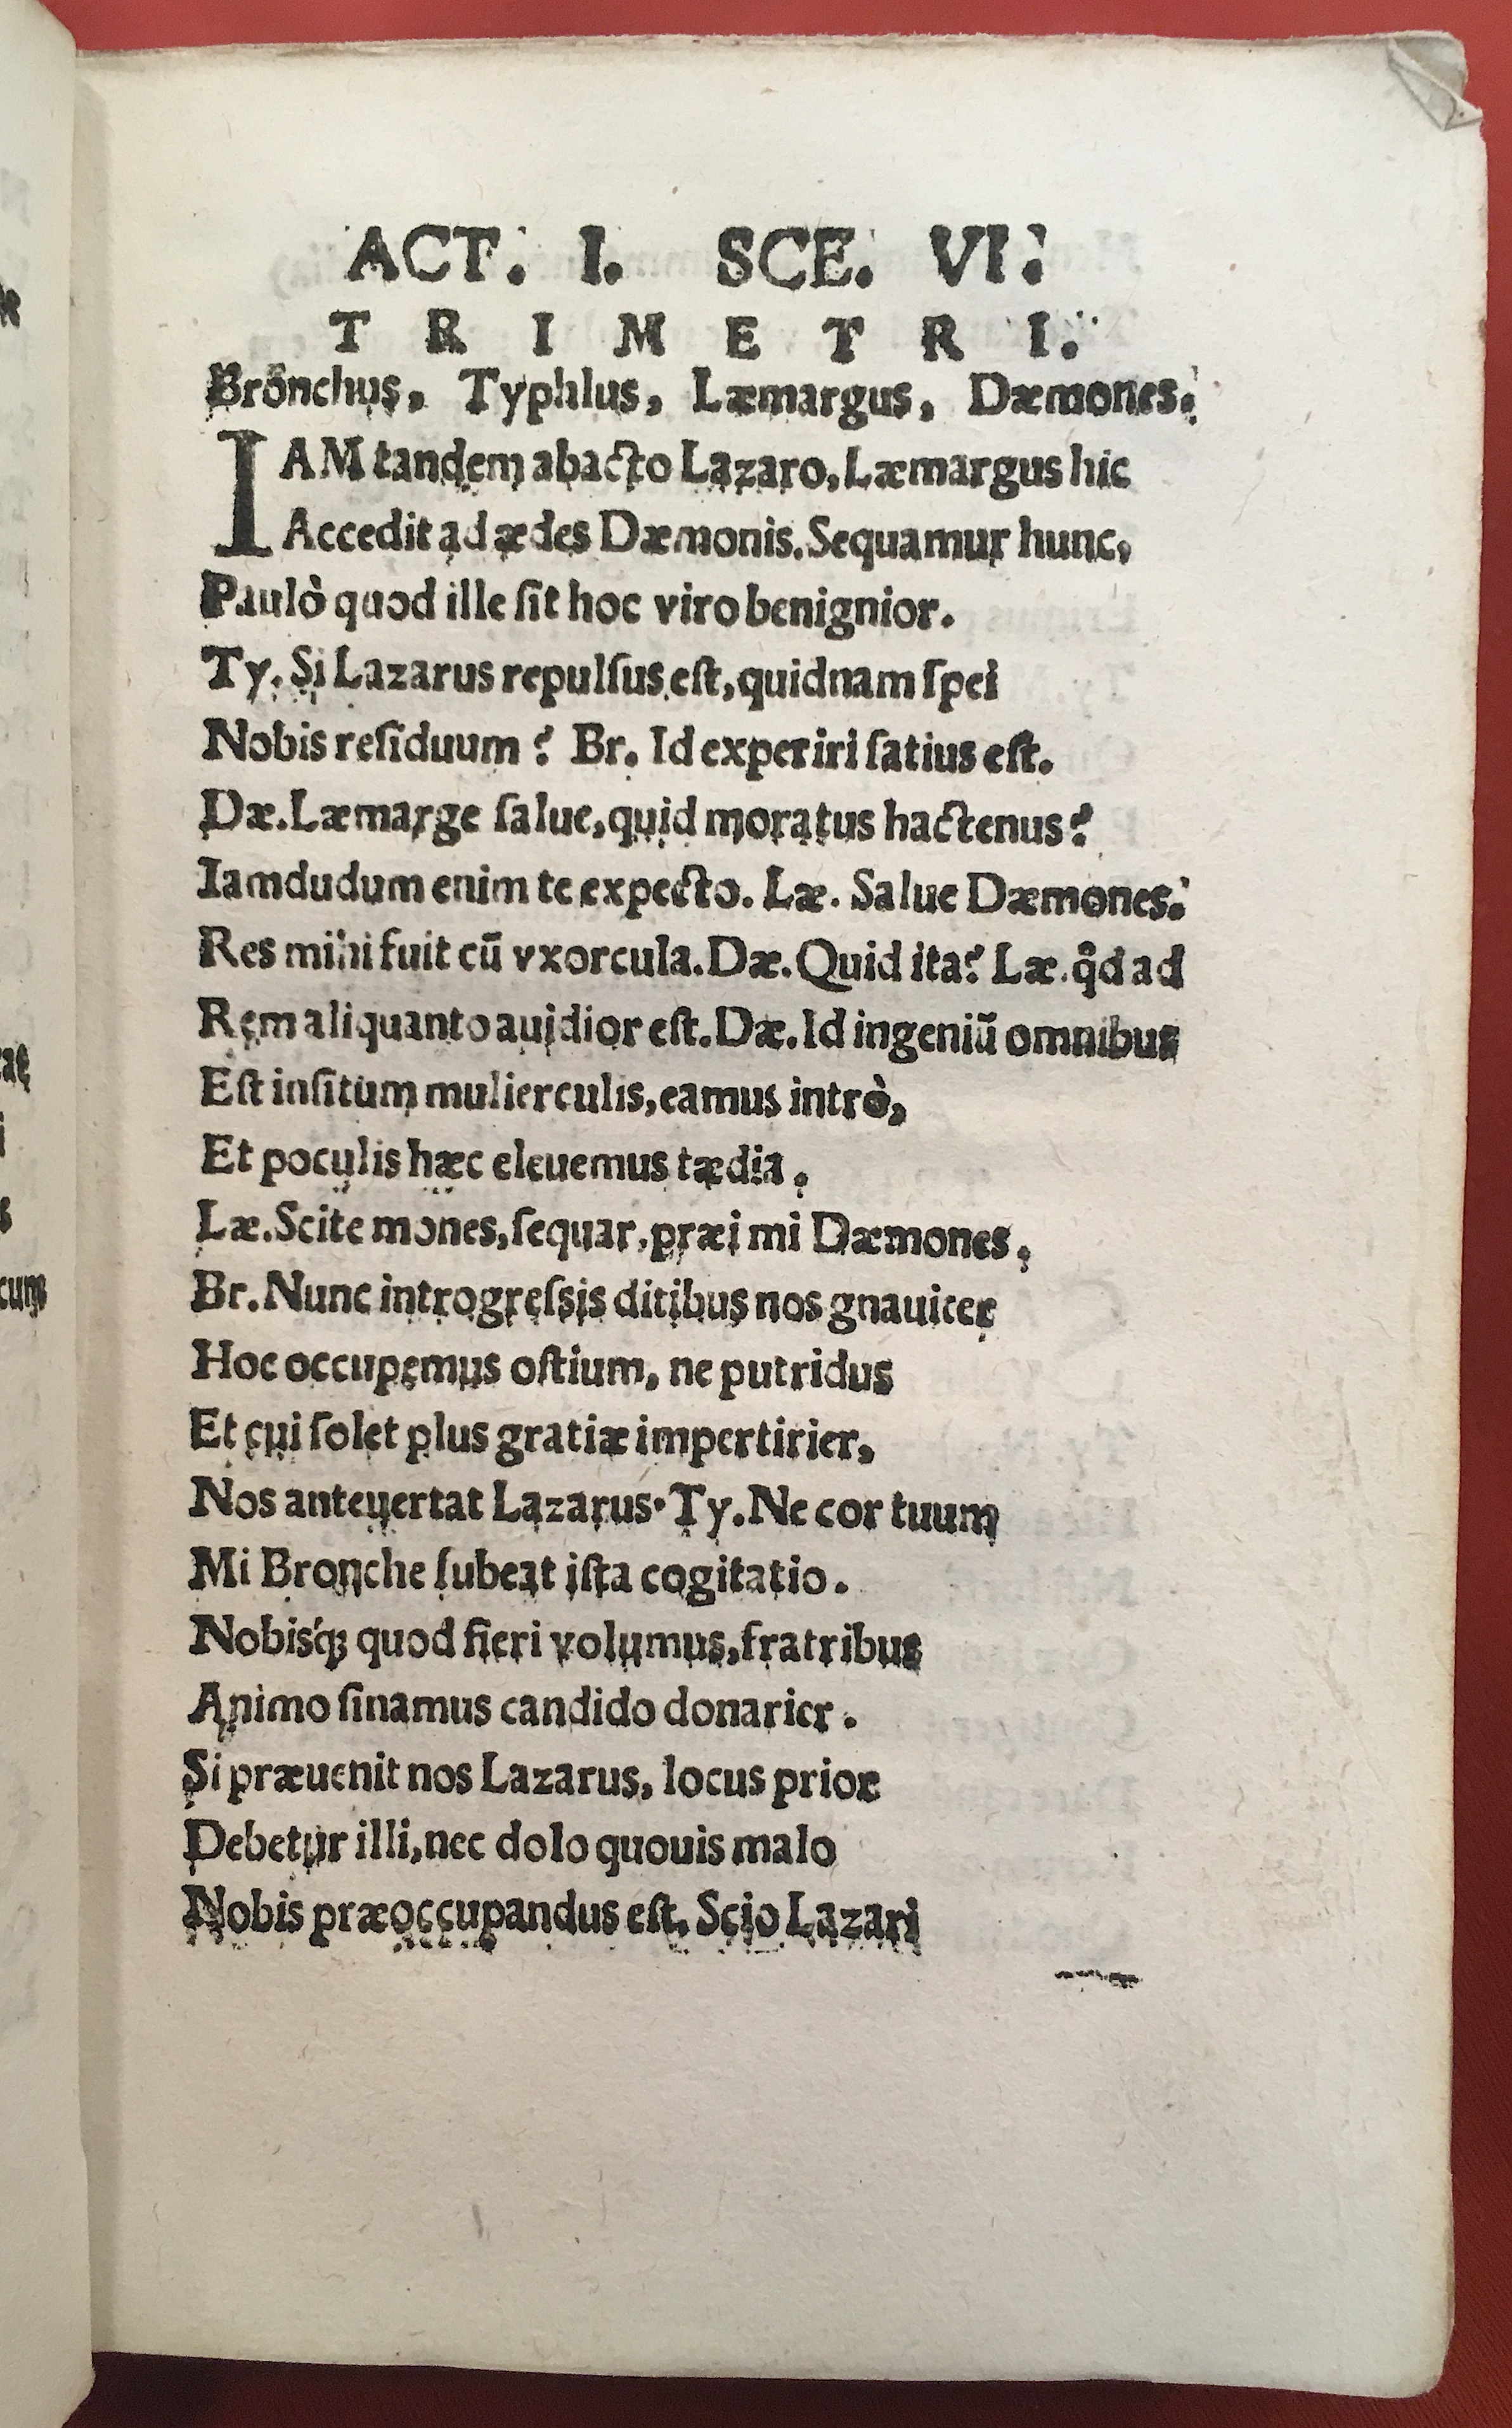 ACT. I. SCE. VI.
TRIMETRI.
Bronchus, Typhlus, Læmargus, Dæmones.
IAM tandem abacto Lazaro, Læmargus hic
Accedit ad ædes Dæmonis. Sequamur hunc,
Paulò quod ille ſit hoc viro benignior.
Ty. Si Lazarus repulſus eſt, quidnam ſpei
Nobis reſiduum? Br. Id experiri ſatius eſt.
Dæ. Læmarge ſalue, quid moratus hactenus?
Iamdudum enim te expecto. Læ. Salue Dæmones.
Res mihi fuit cū vxorcula. Dæ. Quid ita? Læ. qͦd ad
Rem aliquanto auidior eſt. Dæ. Id ingeniū omnibus
Eſt inſitum mulierculis, eamus intrò,
Et poculis hæc eleuemus tædia.
Læ. Scite mones, ſequar, præi mi Dæmones.
Br. Nunc introgreſsis ditibus nos gnauiter
Hoc occupemus oſtium, ne putridus
Et cui ſolet plus gratiæ impertirier,
Nos anteuertat Lazarus. Ty. Ne cor tuum
Mi Bronche ſubeat iſta cogitatio.
Nobisq́; quod fieri volumus, fratribus
Animo ſinamus candido donarier.
Si præuenit nos Lazarus, locus prior
Debetur illi, nec dolo quouis malo
Nobis præoccupandus eſt. Scio Lazari